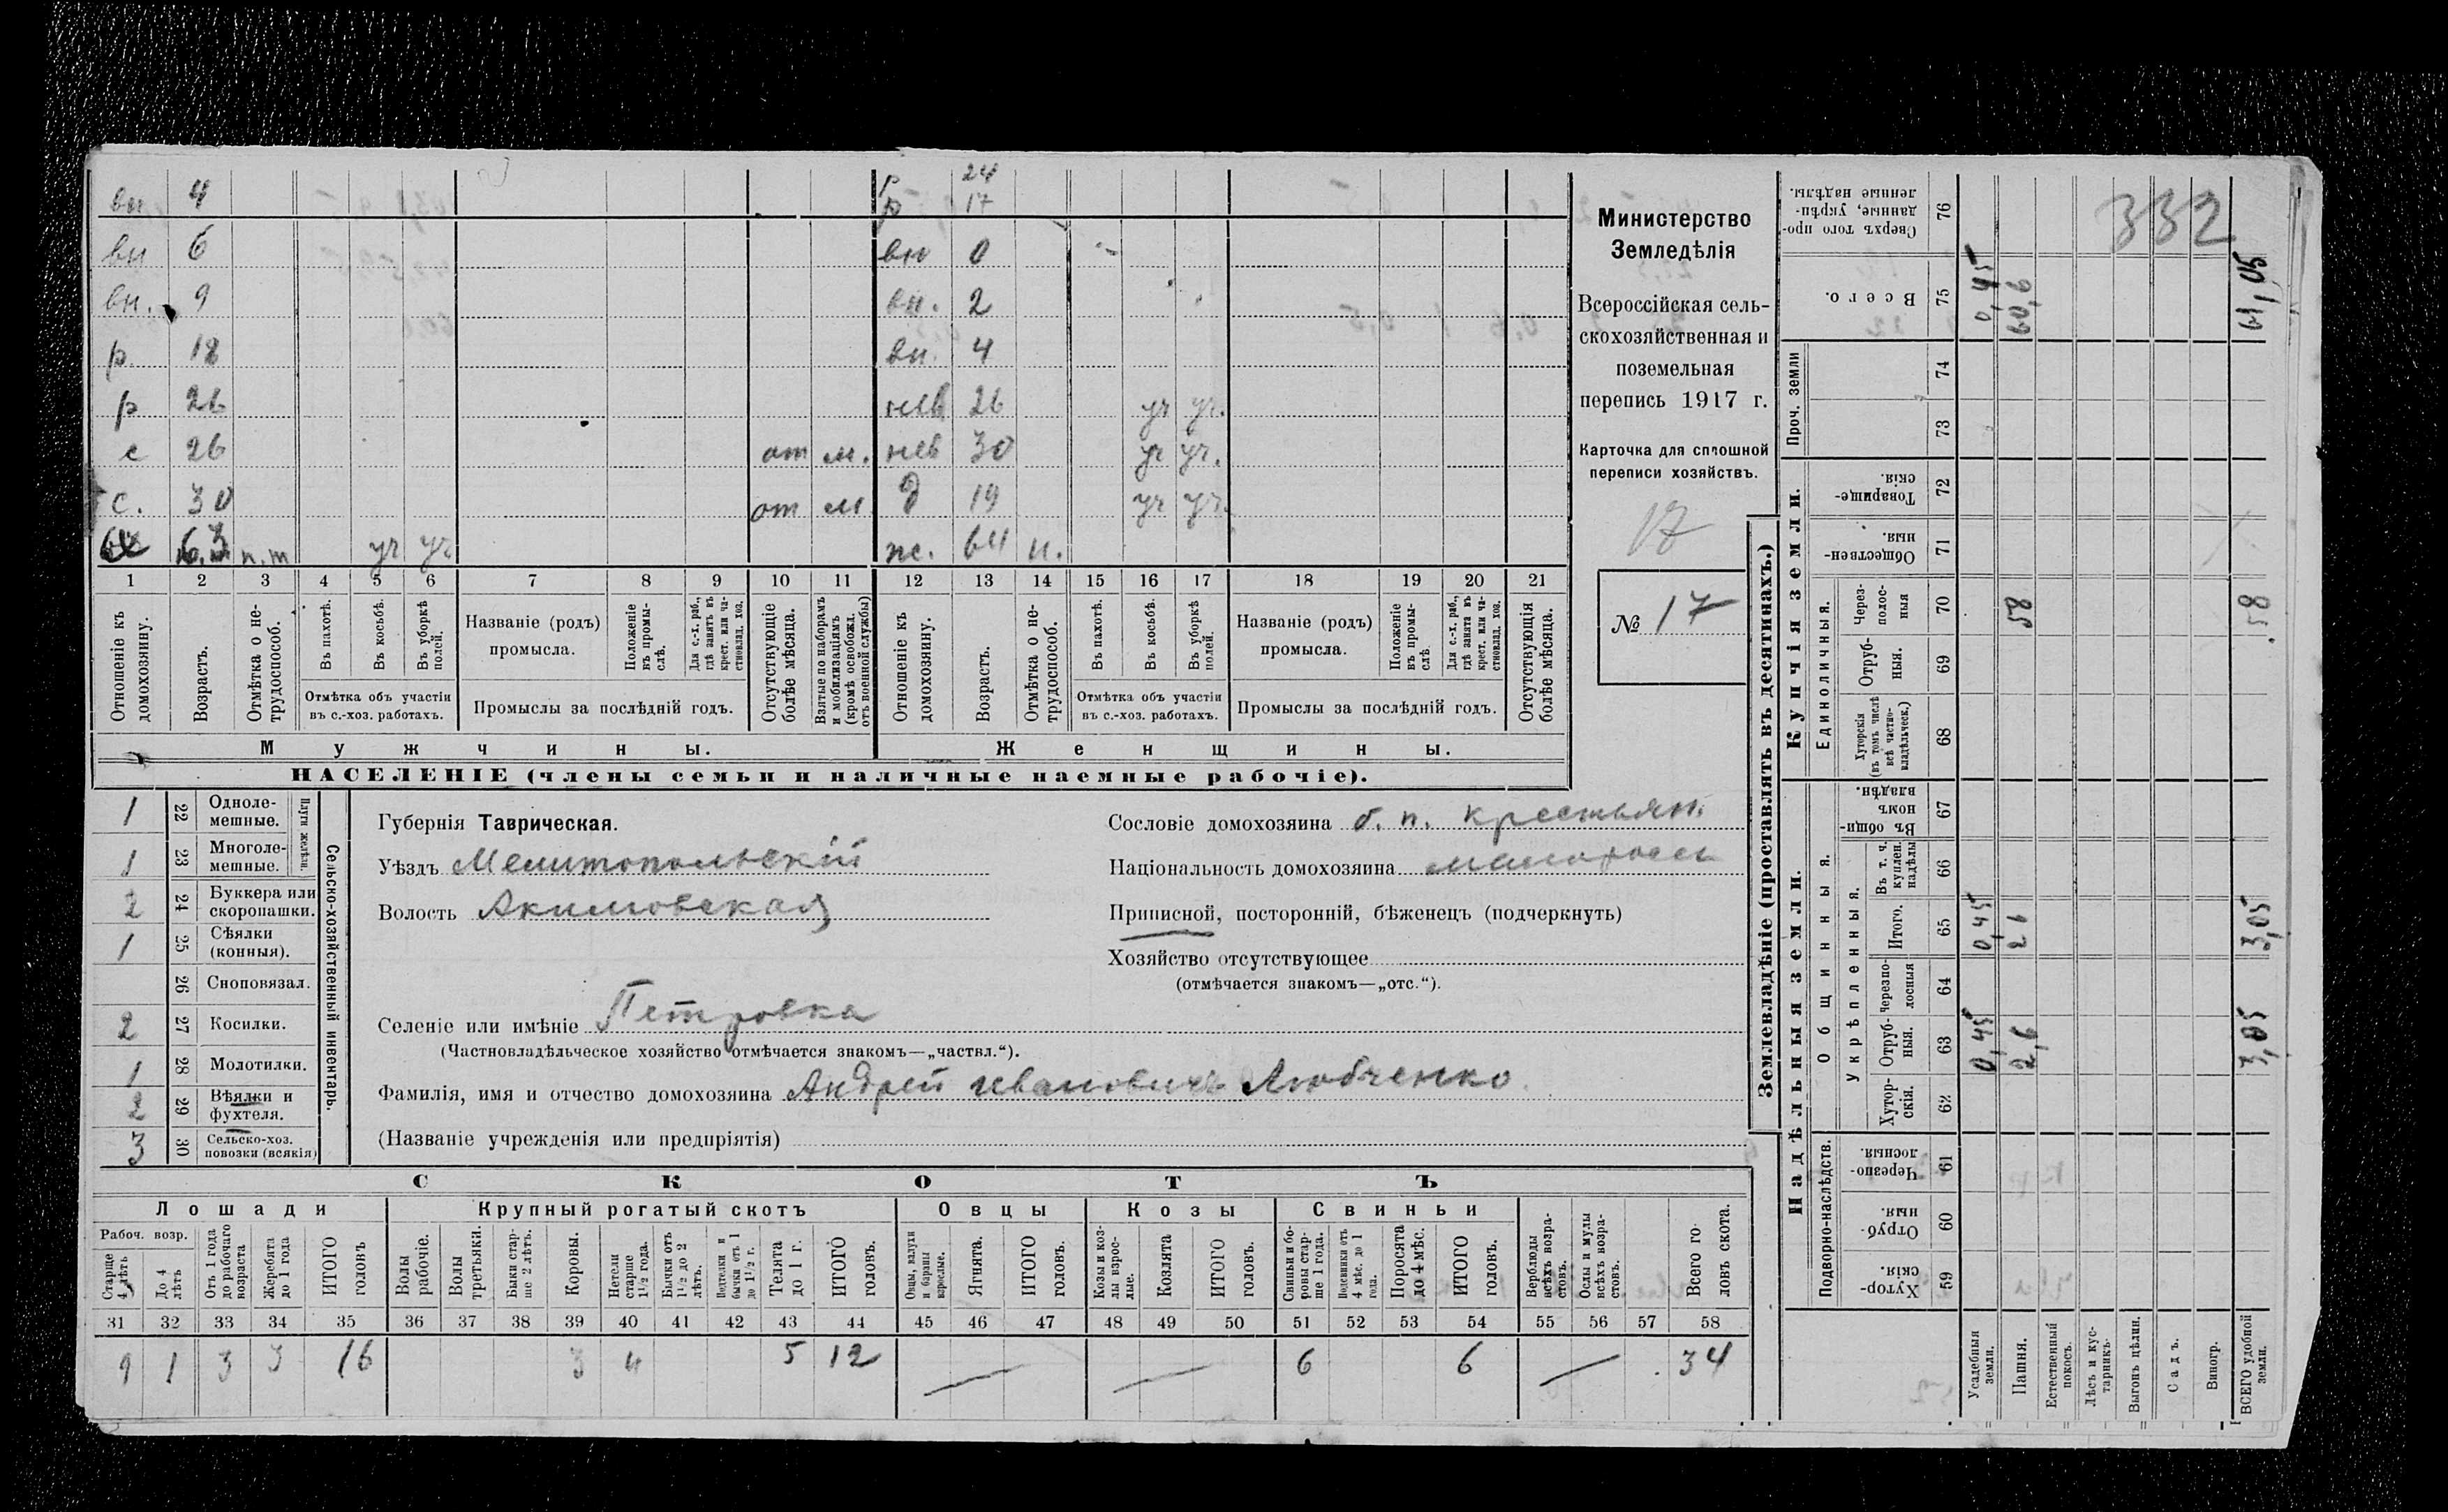 вн 4 р 24
р 17
вн 6 вн 0
вн. 9 вн. 2
р. 18 вн. 4
р 26 нев 26 уч уч.
с 26 от м. нев 30 уч уч.
с. 30 от м д 19 уч уч.
63 п.т уч уч ж. 64 н.
1 2 3 4 5 6 7 8 9 10 11 12 13 14 15 16 17 18 19 20 21
Отношеніе къ домохозяину.
Возрастъ.
Отмѣтка о не-
трудоспособ.
Въ пахотѣ.
Въ косьбѣ.
Въ уборкѣ
полей.
Отмѣтка объ участіи
въ с.-хоз. работахъ.
Названіе (родъ)
промысла.
Положеніе
въ промы-
слѣ.
Для с.-х. раб.,
гдѣ занятъ въ
крест. или ча-
стновлад. хоз.
Промыслы за послѣдній годъ.
Отсутствующіе
болѣе мѣсяца.
Взятые по наборамъ
и мобилизаціямъ
(кромѣ освобожд.
отъ военной службы)
Отношеніе къ
домохозяину.
Возрастъ.
Отмѣтка о не-
трудоспособ.
Въ пахотѣ.
Въ косьбѣ.
Въ уборкѣ
полей.
Отмѣтка объ участіи
въ с.-хоз. работахъ.
Названіе (родъ)
промысла.
Положеніе
въ промы-
слѣ.
Для с.-х. раб.,
гдѣ занята въ
крест. или ча-
стновлад. хоз.
Промыслы за послѣдній годъ.
Отсутствующія
болѣе мѣсяца.
Мужчины.
Женщины.
НАСЕЛЕНІЕ (члены семьи и наличные наемные рабочіе).
Министерство
Земледѣлія
Всероссійская сель-
скохозяйственная и
поземельная
перепись 1917 г.
Карточка для сплошной
переписи хозяйствъ.
17
№ 17
1 22 Одноле-
мешные.
1 23 Многоле-
мешные.
Плуги желѣзн.
2 24 Буккера или
скоропашки.
1 25 Сѣялки
(конныя).
26 Сноповязал.
2 27 Косилки.
1 28 Молотилки.
2 29 Вѣялки и
фухтеля.
3 30 Сельско-хоз.
повозки (всякія)
Сельско-хозяйственный инвентарь.
Губернія Таврическая.
Уѣздъ Мелитопольскій
Волость Акимовская
Селеніе или имѣніе Петровка
(Частновладѣльческое хозяйство отмѣчается знакомъ—„частвл.“).
Фамилія, имя и отчество домохозяина Андрей Ивановичъ Любченко
(Названіе учрежденія или предпріятія)
Сословіе домохозяина б. п. крестьян.
Національность домохозяина малороссъ
Приписной, посторонній, бѣженецъ (подчеркнуть)
Хозяйство отсутствующее
(отмѣчается знакомъ—„отс.“).
СКОТЪ
Лошади Крупный рогатый скотъ Овцы Козы Свиньи
Рабоч. возр.
Старше
4 лѣтъ
До 4
лѣтъ
Отъ 1 года
до рабочаго
возраста
Жеребята
до 1 года
ИТОГО
головъ
Волы
рабочіе.
Волы
третьяки.
Быки стар-
ше 2 лѣтъ.
Коровы.
Нетели
старше
1½ года.
Бычки отъ
1½ до 2
лѣтъ.
Подтелки и
бычки отъ 1
до 1½ г.
Телята
до 1 г.
ИТОГО
головъ.
Овцы, валухи
и бараны
взрослые.
Ягнята.
ИТОГО
головъ.
Козы и коз-
лы взрос-
лые.
Козлята
ИТОГО
головъ.
Свиньи и бо-
ровы стар-
ше 1 года.
Подсвинки отъ
4 мѣс. до 1
года.
Поросята
до 4 мѣс.
ИТОГО
головъ.
Верблюды
всѣхъ возра-
стовъ.
Ослы и мулы
всѣхъ возра-
стовъ.
Всего го
ловъ скота.
31 32 33 34 35 36 37 38 39 40 41 42 43 44 45 46 47 48 49 50 51 52 53 54 55 56 57 58
9 1 3 3 16 3 4 5 12 — — 6 6 — 34
Землевладѣніе (проставлять въ десятинахъ.)
Надѣльныя земли.
Купчія земли.
Подворно-наслѣдств.
Общинныя.
Укрѣпленныя.
Единоличныя.
Проч. земли
Хутор-
скія. 59
Отруб-
ныя. 60
Черезпо-
лосныя 61
Хутор-
скія. 62
Отруб-
ныя. 63 0,45 2,6 3,05
Черезпо-
лосныя 64
Итого. 65 0,45 2 6 3,05
Въ т. ч.
куплен.
надѣлы 66
Въ общин-
номъ
владѣн. 67
Хуторскія
(въ томъ числѣ
всѣ частно-
владѣльческ.) 68
Отруб-
ныя. 69
Через-
полос-
ныя 70 58 58
Обществен-
ныя. 71
Товарище-
скія. 72
73
74
Всего. 75 0,45 60,6 61,05
Сверхъ того про-
данные, укрѣп-
ленные надѣлы. 76
332
Усадебныя
земли.
Пашня.
Естественный
покосъ.
Лѣсъ и кус-
тарникъ
Выгонъ цѣлин.
Садъ.
Виногр.
ВСЕГО удобной
земли.